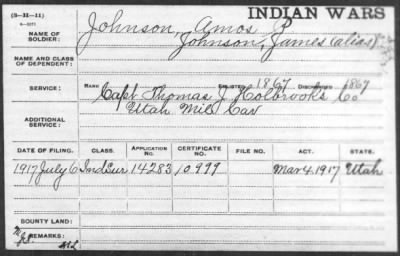 (3-31-11)
INDIAN WARS
NAME OF SOLDIER: Johnson, Amos P
Johnson, James (alias)
NAME AND CLASS OF DEPENDENT:
SERVICE: RANK ENLISTED 1867 DISCHARGED 1867
Capt Thomas J Holbrooks Co
ADDITIONAL SERVICE: Utah Mil Cav
DATE OF FILING. CLASS. APPLICATION NO. CERTIFICATE NO. FILE NO. ACT. STATE.
1917 July 6 Ind Sur 14283 10999 Mar 4, 1917 Utah
BOUNTY LAND:
REMARKS: